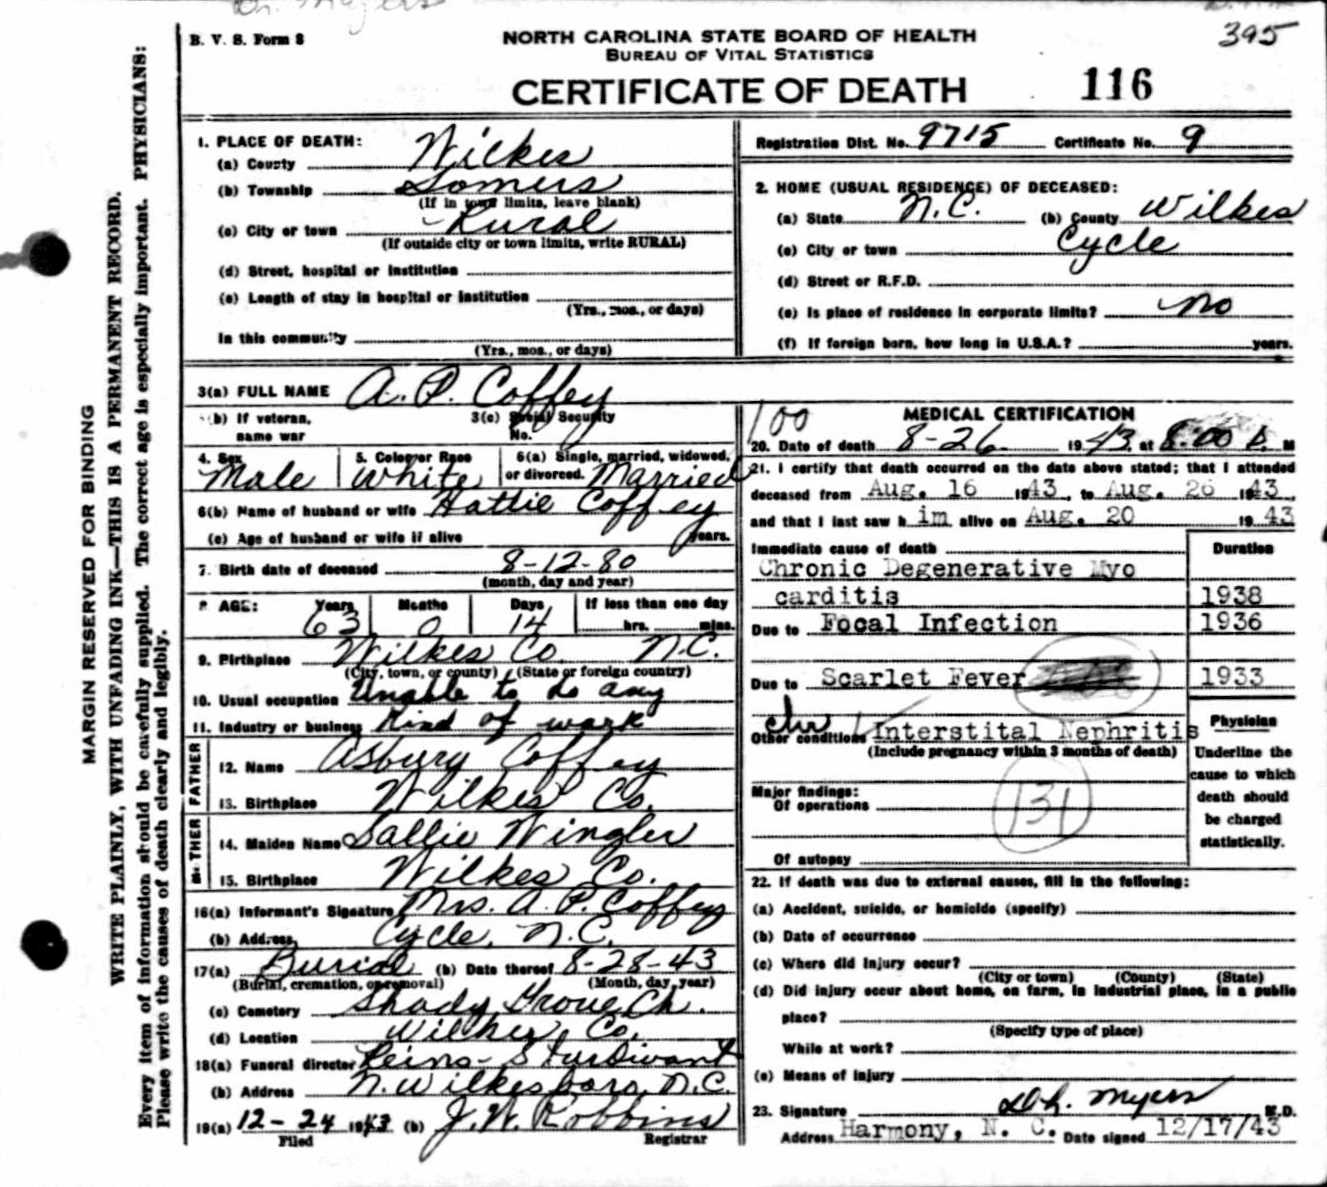 Dr. Myers
395
B. V. S. Form 8
NORTH CAROLINA STATE BOARD OF HEALTH
BUREAU OF VITAL STATISTICS
CERTIFICATE OF DEATH 116
MARGIN RESERVED FOR BINDING
WRITE PLAINLY, WITH UNFADING INK—THIS IS A PERMANENT RECORD.
Every item of information should be carefully supplied. The correct age is especially important. PHYSICIANS:
Please write the causes of death clearly and legibly.
1. PLACE OF DEATH:
(a) County Wilkes
(b) Township Somers
(If in town limits, leave blank)
(c) City or town Rural
(If outside city or town limits, write RURAL)
(d) Street, hospital or institution
(e) Length of stay in hospital or institution
(Yrs., mos., or days)
In this community
(Yrs., mos., or days)
Registration Dist. No. 9715 Certificate No. 9
2. HOME (USUAL RESIDENCE) OF DECEASED:
(a) State N.C. (b) County Wilkes
(c) City or town Cycle
(d) Street or R.F.D.
(e) Is place of residence in corporate limits? no
(f) If foreign born, how long in U.S.A.? years.
3(a) FULL NAME A. P. Coffey
(b) If veteran, name war
3(c) Social Security No.
4. Sex Male
5. Color or Race White
6(a) Single, married, widowed, or divorced. Married
6(b) Name of husband or wife Hattie Coffey
(c) Age of husband or wife if alive years.
7. Birth date of deceased 8-12-80
(month, day and year)
8. AGE: Years Months Days If less than one day
63 0 14 hrs. mins.
9. Birthplace Wilkes Co. N.C.
(City, town, or county) (State or foreign country)
10. Usual occupation Unable to do any
11. Industry or business Kind of work
FATHER
12. Name Asbury Coffey
13. Birthplace Wilkes Co.
MOTHER
14. Maiden Name Sallie Wingler
15. Birthplace Wilkes Co.
16(a) Informant's Signature Mrs. A. P. Coffey
(b) Address Cycle, N.C.
17(a) Burial (b) Date thereof 8-28-43
(Burial, cremation, or removal) (Month, day, year)
(c) Cemetery Shady Grove Ch.
(d) Location Wilkes Co.
18(a) Funeral director Reins-Sturdivant
(b) Address N. Wilkesboro, N.C.
19(a) 12-24 1943 (b) J. W. Robbins
Filed Registrar
100
MEDICAL CERTIFICATION
20. Date of death 8-26 1943, at 8:00 P. M
21. I certify that death occurred on the date above stated; that I attended
deceased from Aug. 16 1943, to Aug. 26 1943,
and that I last saw h im alive on Aug. 20 1943
Immediate cause of death Duration
Chronic Degenerative Myo
carditis 1938
Due to Focal Infection 1936
Due to Scarlet Fever 1933
chr
Other conditions Interstital Nephritis
(Include pregnancy within 3 months of death)
Physician
Underline the
cause to which
death should
be charged
statistically.
131
Major findings:
Of operations
Of autopsy
22. If death was due to external causes, fill in the following:
(a) Accident, suicide, or homicide (specify)
(b) Date of occurrence
(c) Where did injury occur?
(City or town) (County) (State)
(d) Did injury occur about home, on farm, in industrial place, in a public
place?
(Specify type of place)
While at work?
(e) Means of injury
23. Signature Myers M.D.
Address Harmony, N. C. Date signed 12/17/43